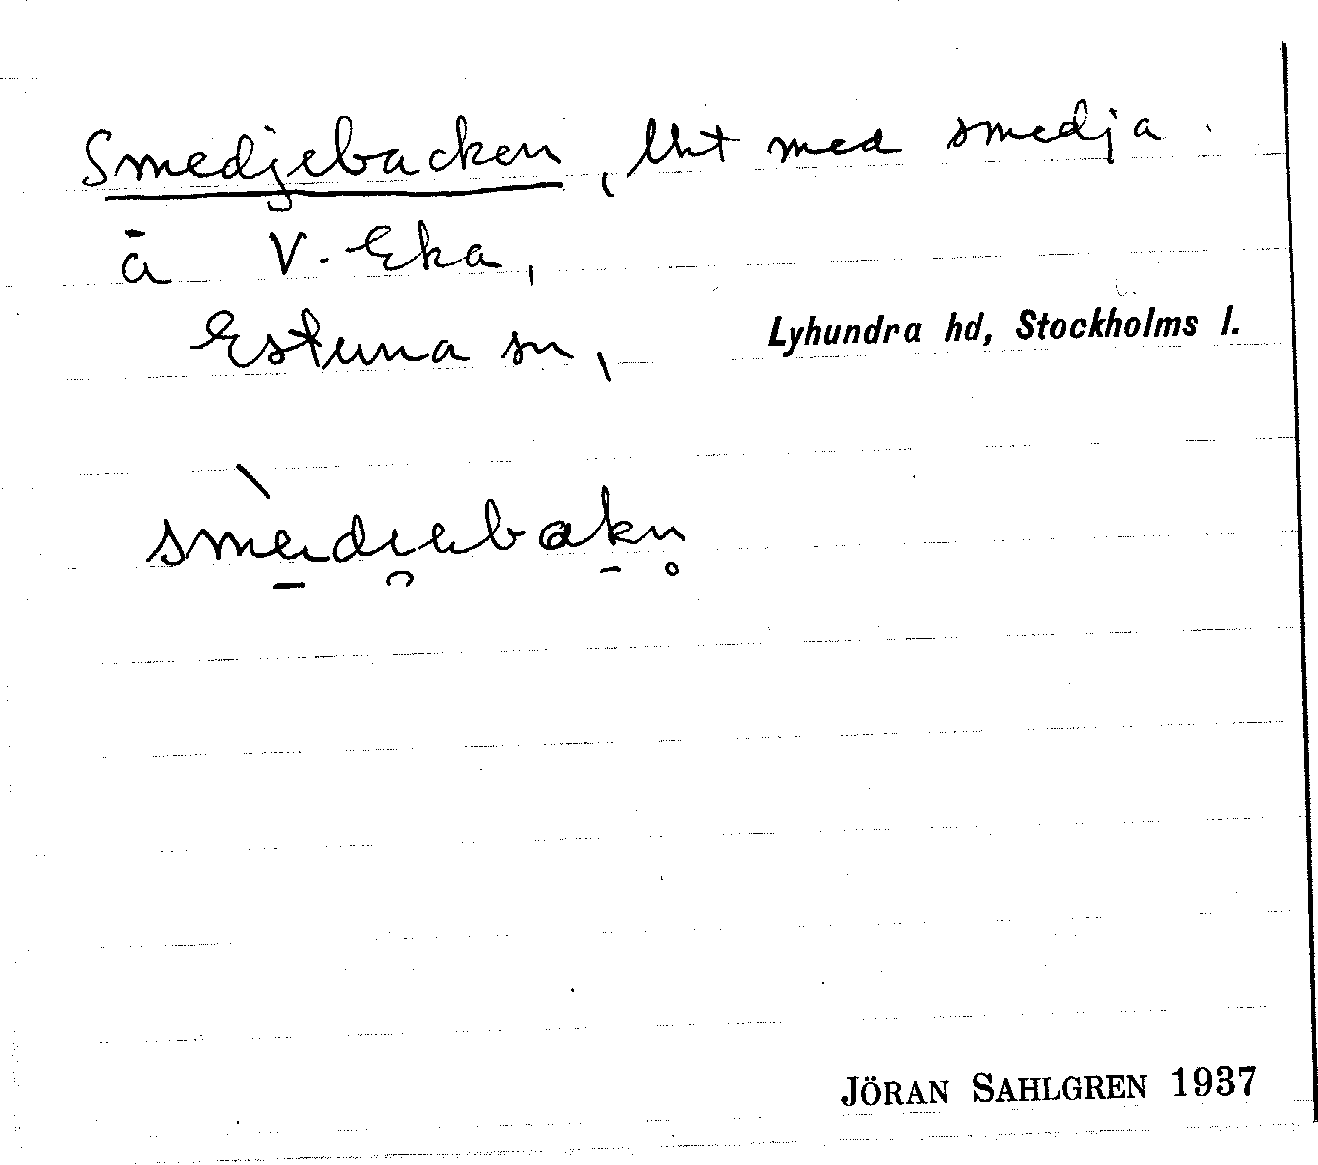 Smedjebacken, lht med smedja.
å V. Eka,
Estuna sn, Lyhundra hd, Stockholms l.
JÖRAN SAHLGREN 1937